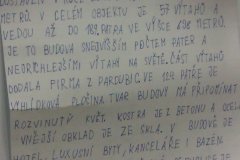 METRŮ. V CELÉM OBJEKTU JE 57 VÝTAHŮ A
VEDOU AŽ DO 189. PATRA VE VÝŠCE 638 METRŮ.
JE TO BUDOVA S NEJVYŠŠÍM POČTEM PATER A
NEJRYCHLEJŠÍMI VÝTAHY NA SVĚTĚ. ČÁST VÝTAHŮ
DODALA FIRMA Z PARDUBIC. VE 124. PATŘE JE
VYHLÍDKOVÁ PLOŠINA. TVAR BUDOVY MÁ PŘIPOMÍNAT
ROZVINUTÝ KVĚT. KOSTRA JE Z BETONU A OCELI
VNĚJŠÍ OBKLAD JE ZE SKLA. V BUDOVĚ JE
HOTEL, LUXUSNÍ BYTY, KANCELÁŘE I BAZÉN.